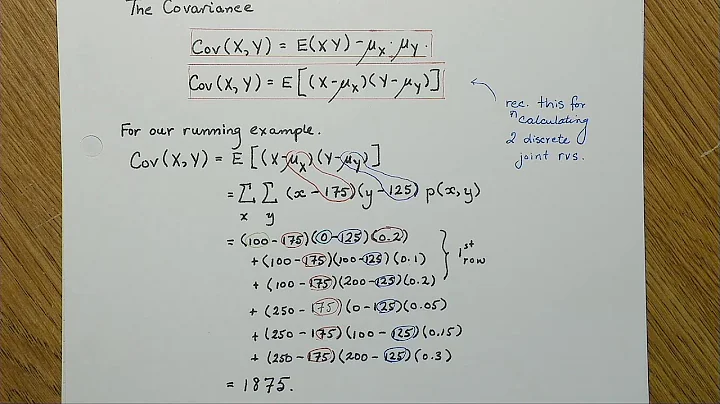 The Covariance
Cov(X,Y) = E(XY) - μx·μY.
Cov(X,Y) = E[(X-μx)(Y-μY)]
rec. this for
calculating
2 discrete
joint rvs.
For our running example.
Cov(X,Y) = E[(X-μx)(Y-μY)]
= Σ Σ (x-175)(y-125) p(x,y)
x y
= (100-175)(0-125)(0.2)
+ (100-175)(100-125)(0.1)
+ (100-175)(200-125)(0.2)
1st
row
+ (250-175)(0-125)(0.05)
+ (250-175)(100-125)(0.15)
+ (250-175)(200-125)(0.3)
= 1875.